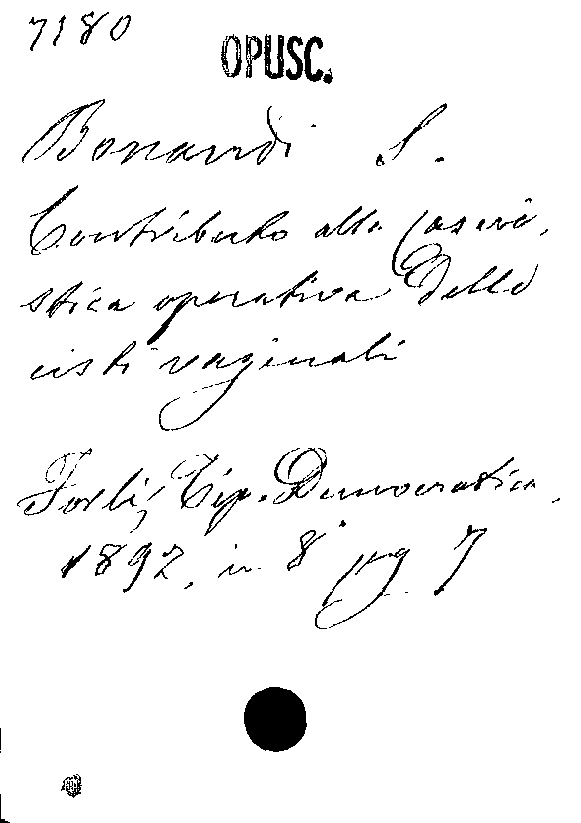 7180
OPUSC.
Bonardi S.
Contributo alla casui-
stica operativa delle
cisti vaginali
Forlì, Tip. Democratica,
1892, in 8° pg. 7